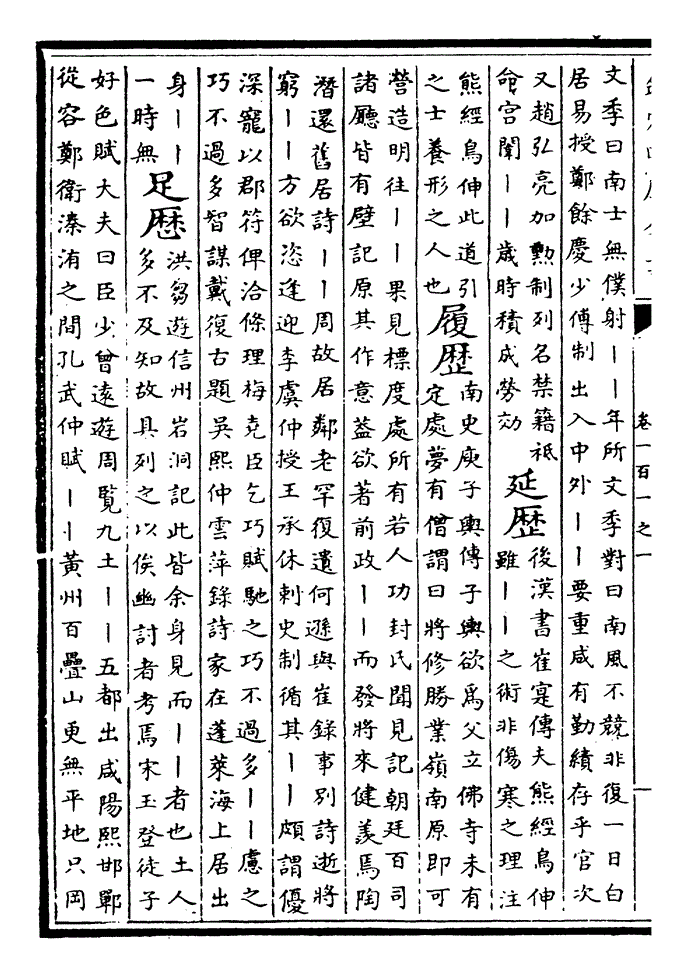 卷一百一之一
文季曰南士無僕射丨丨年所文季對曰南風不競非復一日白
居易授鄭餘慶少傅制出入中外丨丨要重咸有勤績存乎官次
又趙弘亮加勲制列名禁籍祗
命宫闈丨丨歲時積成勞効
延歴
後漢書崔寔傳夫熊經鳥伸
雖丨丨之術非傷寒之理注
熊經鳥伸此道引
之士養形之人也
履歴
南史庾子輿傳子輿欲為父立佛寺未有
定處夢有僧謂曰將修勝業嶺南原即可
營造明往丨丨果見標度處所有若人功封氏聞見記朝廷百司
諸廳皆有壁記原其作意蓋欲著前政丨丨而發將來健羨焉陶
潛還舊居詩丨丨周故居鄰老罕復遺何遜與崔錄事别詩逝將
窮丨丨方欲恣逢迎李虞仲授王承休刺史制循其丨丨頗謂優
深寵以郡符俾洽條理梅堯臣乞巧賦馳之巧不過多丨丨慮之
巧不過多智謀戴復古題吳熙仲雲萍錄詩家在蓬萊海上居出
身丨丨
一時無
足歴
洪芻遊信州岩洞記此皆余身見而丨丨者也土人
多不及知故具列之以俟幽討者考焉宋玉登徒子
好色賦大夫曰臣少曾逺遊周覧九土丨丨五都出咸陽熙邯鄲
從容鄭衛溱洧之間孔武仲賦丨丨黃州百疊山更無平地只岡